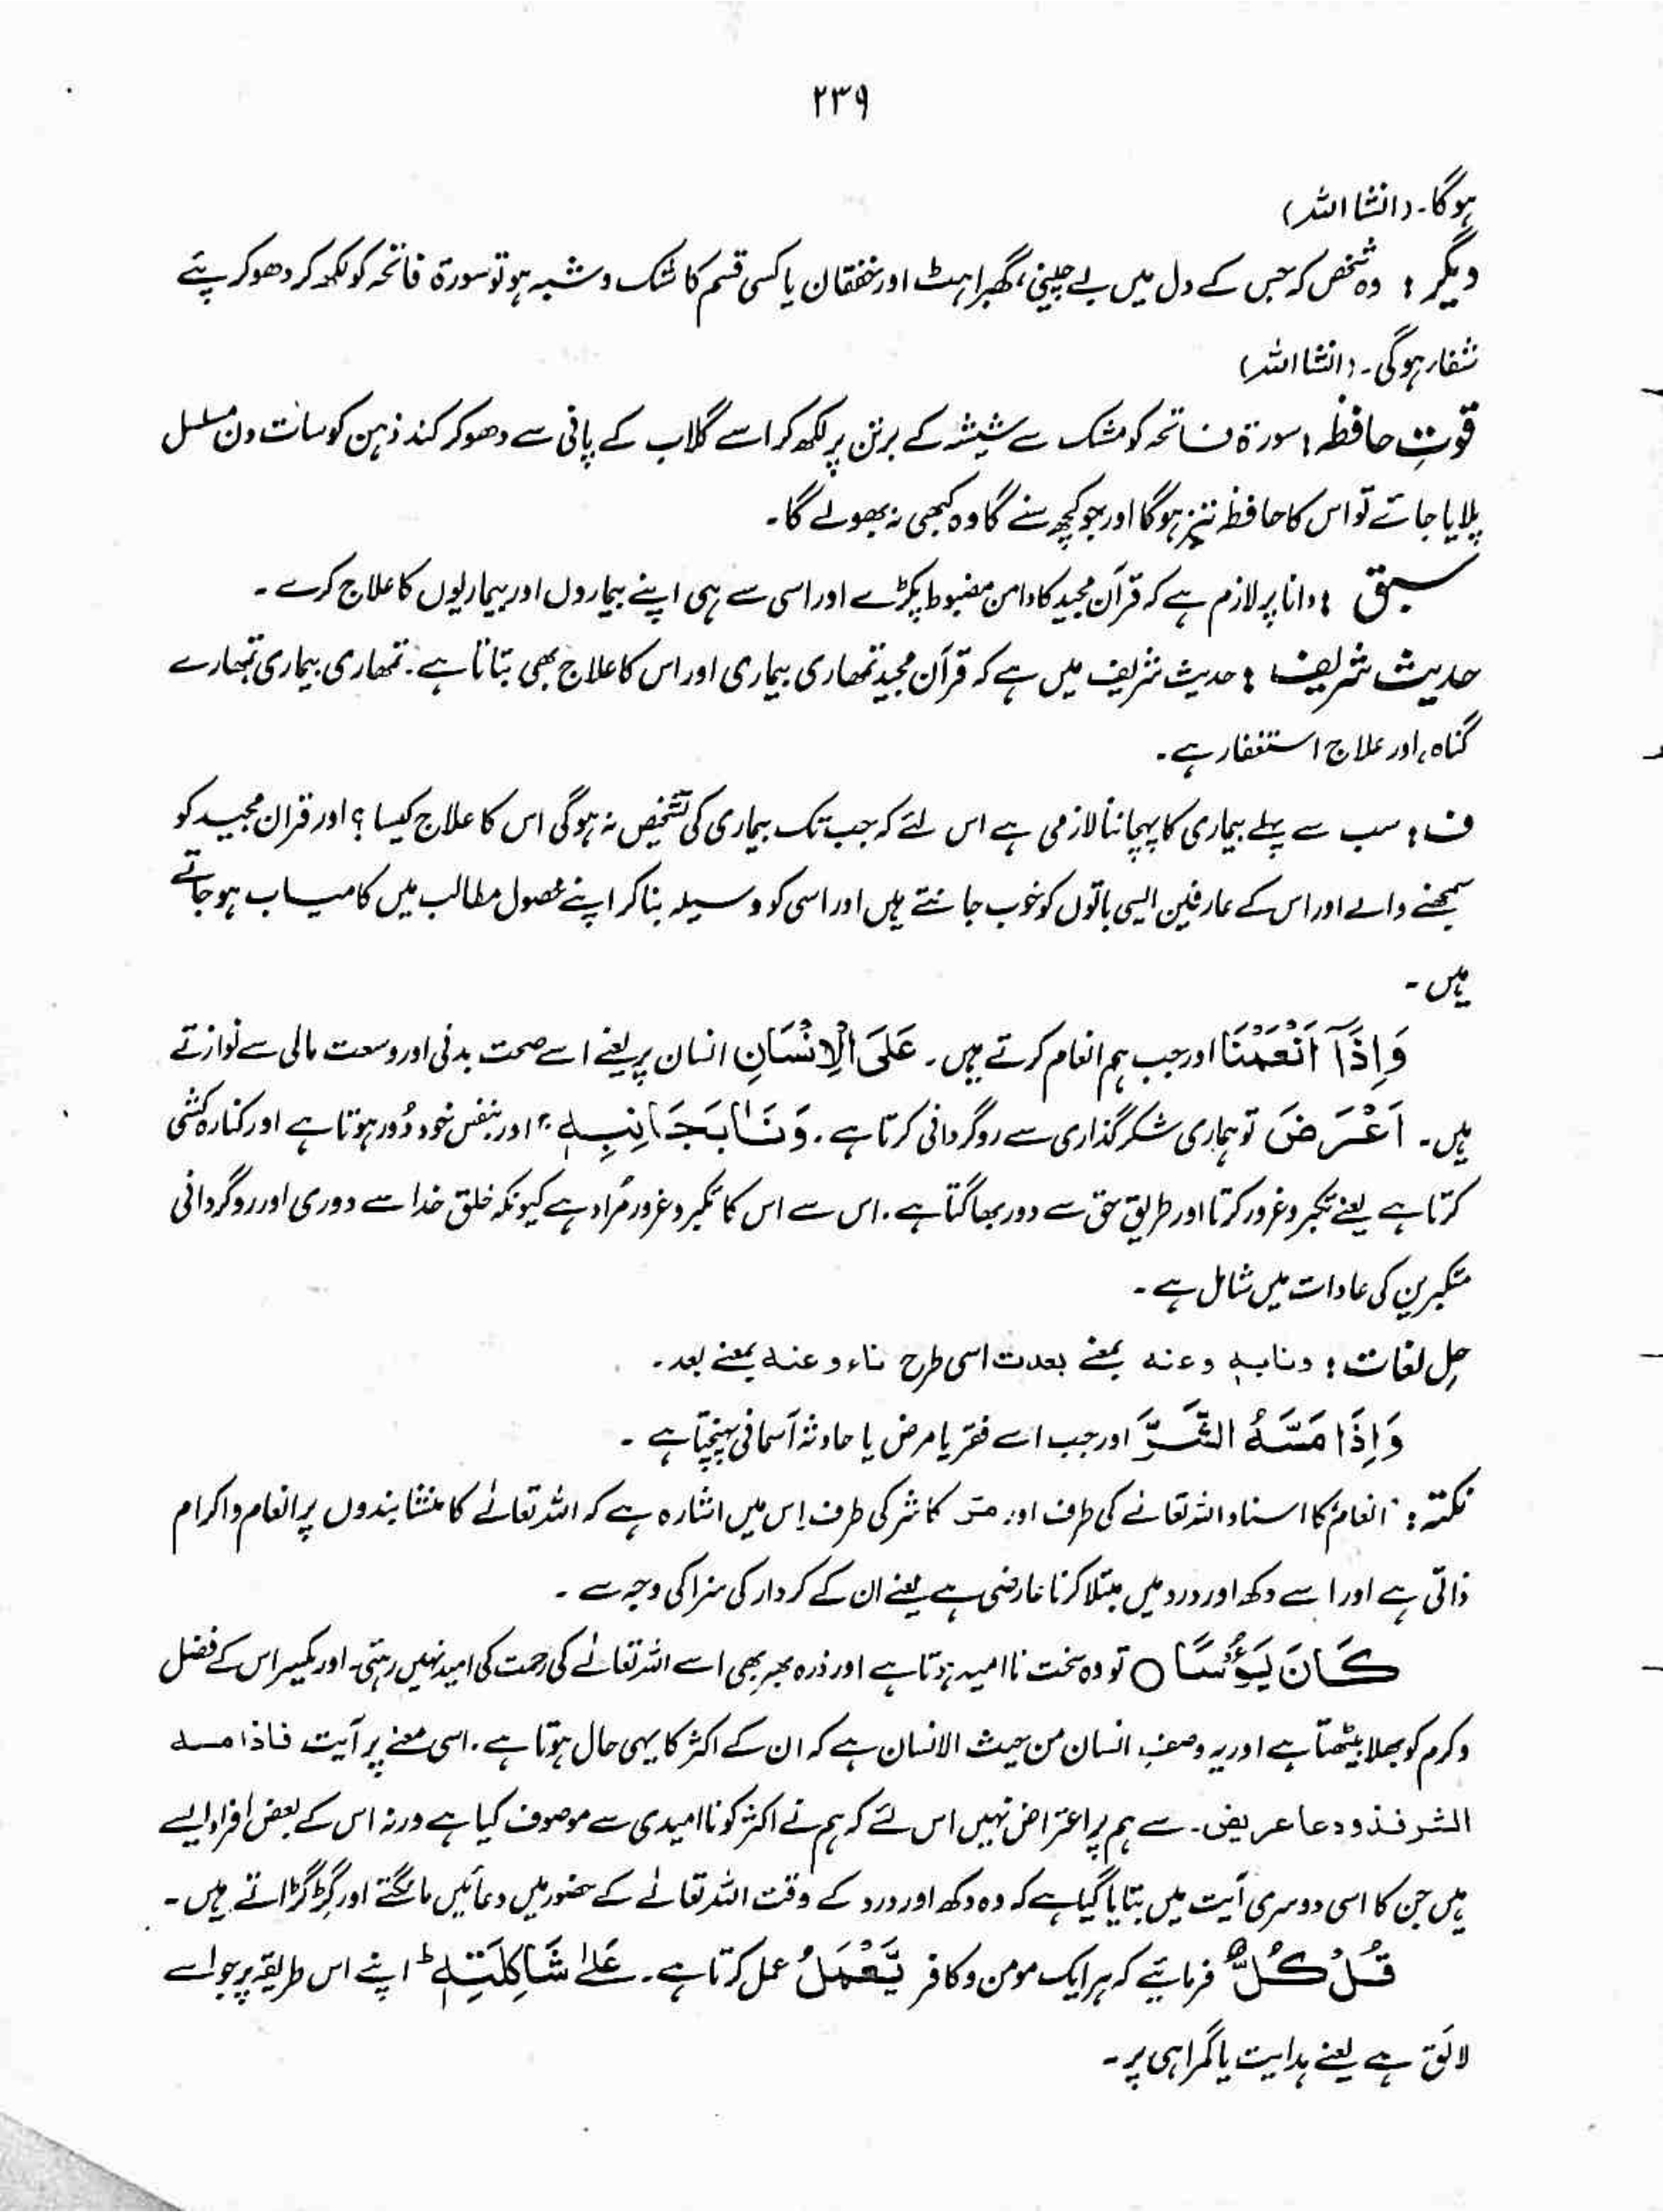 ۲۳۹
ہوگا۔ (انشا اللہ)
دیگر : وہ شخص کہ جس کے دل میں بے چینی، گھبراہٹ اور خفقان یا کسی قسم کا شک و شبہ ہو تو سورۃ فاتحہ کو لکھ کر دھو کر پئے
شفاء ہوگی۔ (انشا اللہ)
قوتِ حافظہ : سورۃ فاتحہ کو مشک سے شیشہ کے برتن پر لکھ کر اسے گلاب کے پانی سے دھو کر کند ذہن کو سات دن مسلسل
پلایا جائے تو اس کا حافظہ تیز ہوگا اور جو کچھ سنے گا وہ کبھی نہ بھولے گا۔
سبق : دانا پر لازم ہے کہ قرآن مجید کا دامن مضبوط پکڑے اور اسی سے ہی اپنے بیماروں اور بیماریوں کا علاج کرے۔
حدیث شریف : حدیث شریف میں ہے کہ قرآن مجید تمھاری بیماری اور اس کا علاج بھی بتاتا ہے۔ تمھاری بیماری تمہارے
گناہ، اور علاج استغفار ہے۔
ف : سب سے پہلے بیماری کا پہچاننا لازمی ہے اس لئے کہ جب تک بیماری کی تشخیص نہ ہوگی اس کا علاج کیسا ؟ اور قران مجید کو
سمجھنے والے اور اس کے عارفین ایسی باتوں کو خوب جانتے ہیں اور اسی کو وسیلہ بنا کر اپنے حصول مطالب میں کامیاب ہو جاتے
ہیں۔
وَاِذَآ اَنْعَمْنَا اور جب ہم انعام کرتے ہیں۔ عَلَی الْاِنْسَانِ انسان پر یعنے اسے صحت بدنی اور وسعت مالی سے نوازتے
ہیں۔ اَعْرَضَ تو ہماری شکر گذاری سے روگردانی کرتا ہے۔ وَنَاٰ بِجَانِبِہٖ ج اور بنفس خود دُور ہوتا ہے اور کنارہ کشی
کرتا ہے یعنے تکبر و غرور کرتا اور طریق حق سے دور بھاگتا ہے۔ اس سے اس کا تکبر و غرور مُراد ہے کیونکہ خلق خدا سے دوری اور روگردانی
متکبرین کی عادات میں شامل ہے۔
حلِ لغات : ونابہٖ وعنہ بمعنے بعدت اسی طرح ناء وعنہ بمعنے بعد۔
وَاِذَا مَسَّہُ الشَّرُّ اور جب اسے فقر یا مرض یا حادثہ آسمانی پہنچتا ہے۔
نکتہ : انعام کا اسناد اللہ تعالےٰ کی طرف اور مسّ کا شر کی طرف اِس میں اشارہ ہے کہ اللہ تعالےٰ کا منشا بندوں پر انعام و اکرام
ذاتی ہے اور اسے دکھ اور درد میں مبتلا کرنا عارضی ہے یعنے ان کے کردار کی سزا کی وجہ سے۔
کَانَ یَؤُسًا ○ تو وہ سخت ناامید ہوتا ہے اور ذرہ بھر بھی اسے اللہ تعالےٰ کی رحمت کی امید نہیں رہتی۔ اور یکسر اس کے فضل
و کرم کو بھلا بیٹھتا ہے اور یہ وصف انسان من حیث الانسان ہے کہ ان کے اکثر کا یہی حال ہوتا ہے۔ اسی معنے پر آیت فاذا مسہ
الشر فذو دعا عریض۔ سے ہم پر اعتراض نہیں اس لئے کہ ہم نے اکثر کو ناامیدی سے موصوف کیا ہے ورنہ اس کے بعض افراد ایسے
ہیں جن کا اسی دوسری آیت میں بتایا گیا ہے کہ وہ دکھ اور درد کے وقت اللہ تعالےٰ کے حضور میں دعائیں مانگتے اور گڑگڑاتے ہیں۔
قُلْ کُلٌّ فرمائیے کہ ہر ایک مومن و کافر یَّعْمَلُ عمل کرتا ہے۔ عَلٰی شَاکِلَتِہٖ ط اپنے اس طریقہ پر جو اسے
لائق ہے یعنے ہدایت یا گمراہی پر۔